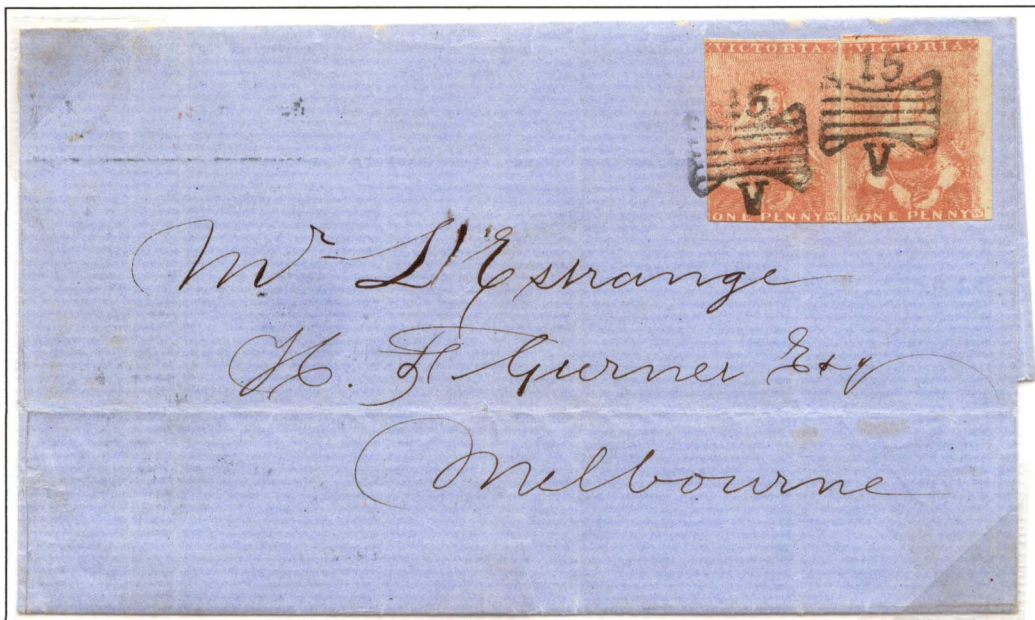 VICTORIA VICTORIA
15 15
V V
ONE PENNY ONE PENNY
Mr L'Estrange
H. F Gurner Esq
Melbourne